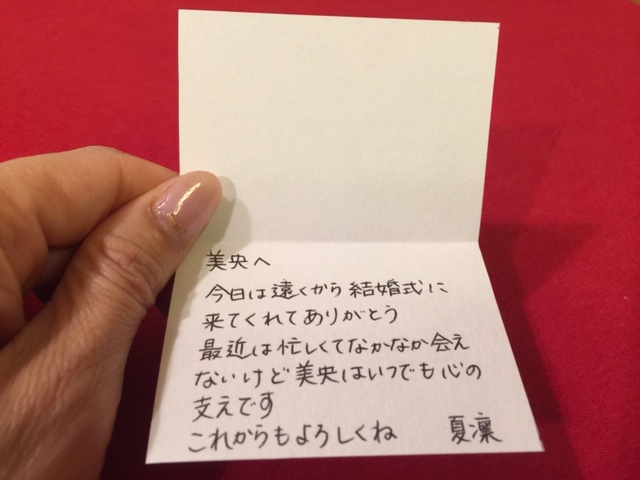 美央へ
今日は遠くから結婚式に
来てくれてありがとう
最近は忙しくてなかなか会え
ないけど美央はいつでも心の
支えです
これからもよろしくね　夏凜